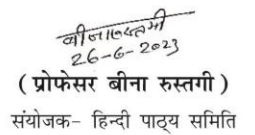 बीना रुस्तगी
26-6-2023
( प्रोफेसर बीना रुस्तगी )
संयोजक- हिन्दी पाठ्य समिति